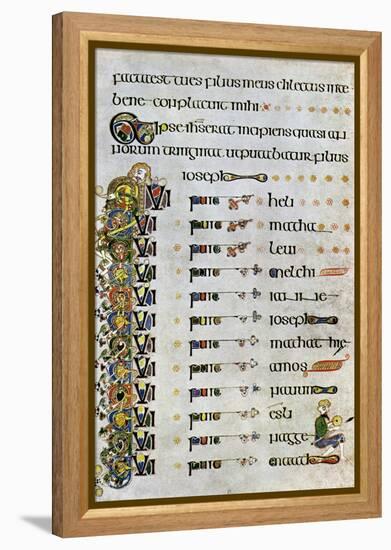 facta est tu es filius meus dilectus in te
bene conplacuit mihi
Et ipse ihs erat incipiens quasi an
norum triginta ut putabatur filius
ioseph
QUI fuit heli
QUI fuit matha
QUI fuit leui
QUI fuit melchi
QUI fuit iannae
QUI fuit ioseph
QUI fuit mathathie
QUI fuit amos
QUI fuit nauum
QUI fuit esli
QUI fuit nagge
QUI fuit maath